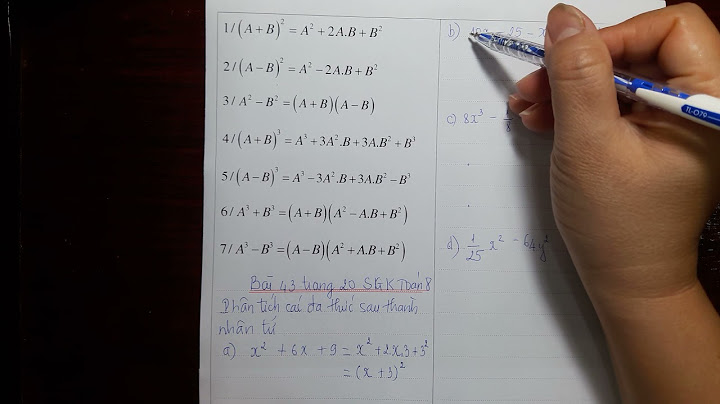 1/ (A + B)² = A² + 2A.B + B²
2/ (A − B)² = A² − 2A.B + B²
3/ A² − B² = (A + B)(A − B)
4/ (A + B)³ = A³ + 3A².B + 3A.B² + B³
5/ (A − B)³ = A³ − 3A².B + 3A.B² − B³
6/ A³ + B³ = (A + B)(A² − A.B + B²)
7/ A³ − B³ = (A − B)(A² + A.B + B²)
Bài 43 trang 20 SGK Toán 8
Phân tích các đa thức sau thành
nhân tử
a) x² + 6x + 9 = x² + 2x.3 + 3²
= (x + 3)²
b) − 25 − x
c) 8x³ − 1/8
d) 1/25 x² − 64y²
TL-079